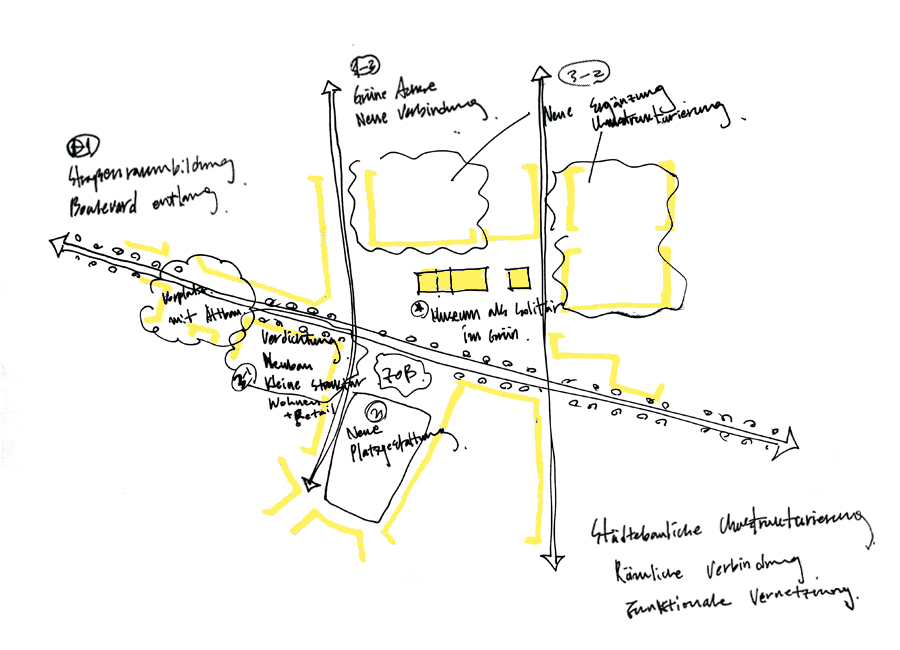 1-3
Grüne Achse
Neue Verbindung.
3-2
Neue Ergänzung
Umstrukturierung.
Straßenraumbildung
Boulevard entlang.
Vorplatz
mit Altbau
Verdichtung
Neubau
Kleine Struktur
Wohnen
+ Retail
Museum als Solitär
im Grün.
ZOB.
Neue
Platzgestaltung.
Städtebauliche Umstrukturierung.
Räumliche Verbindung
Funktionale Vernetzung.